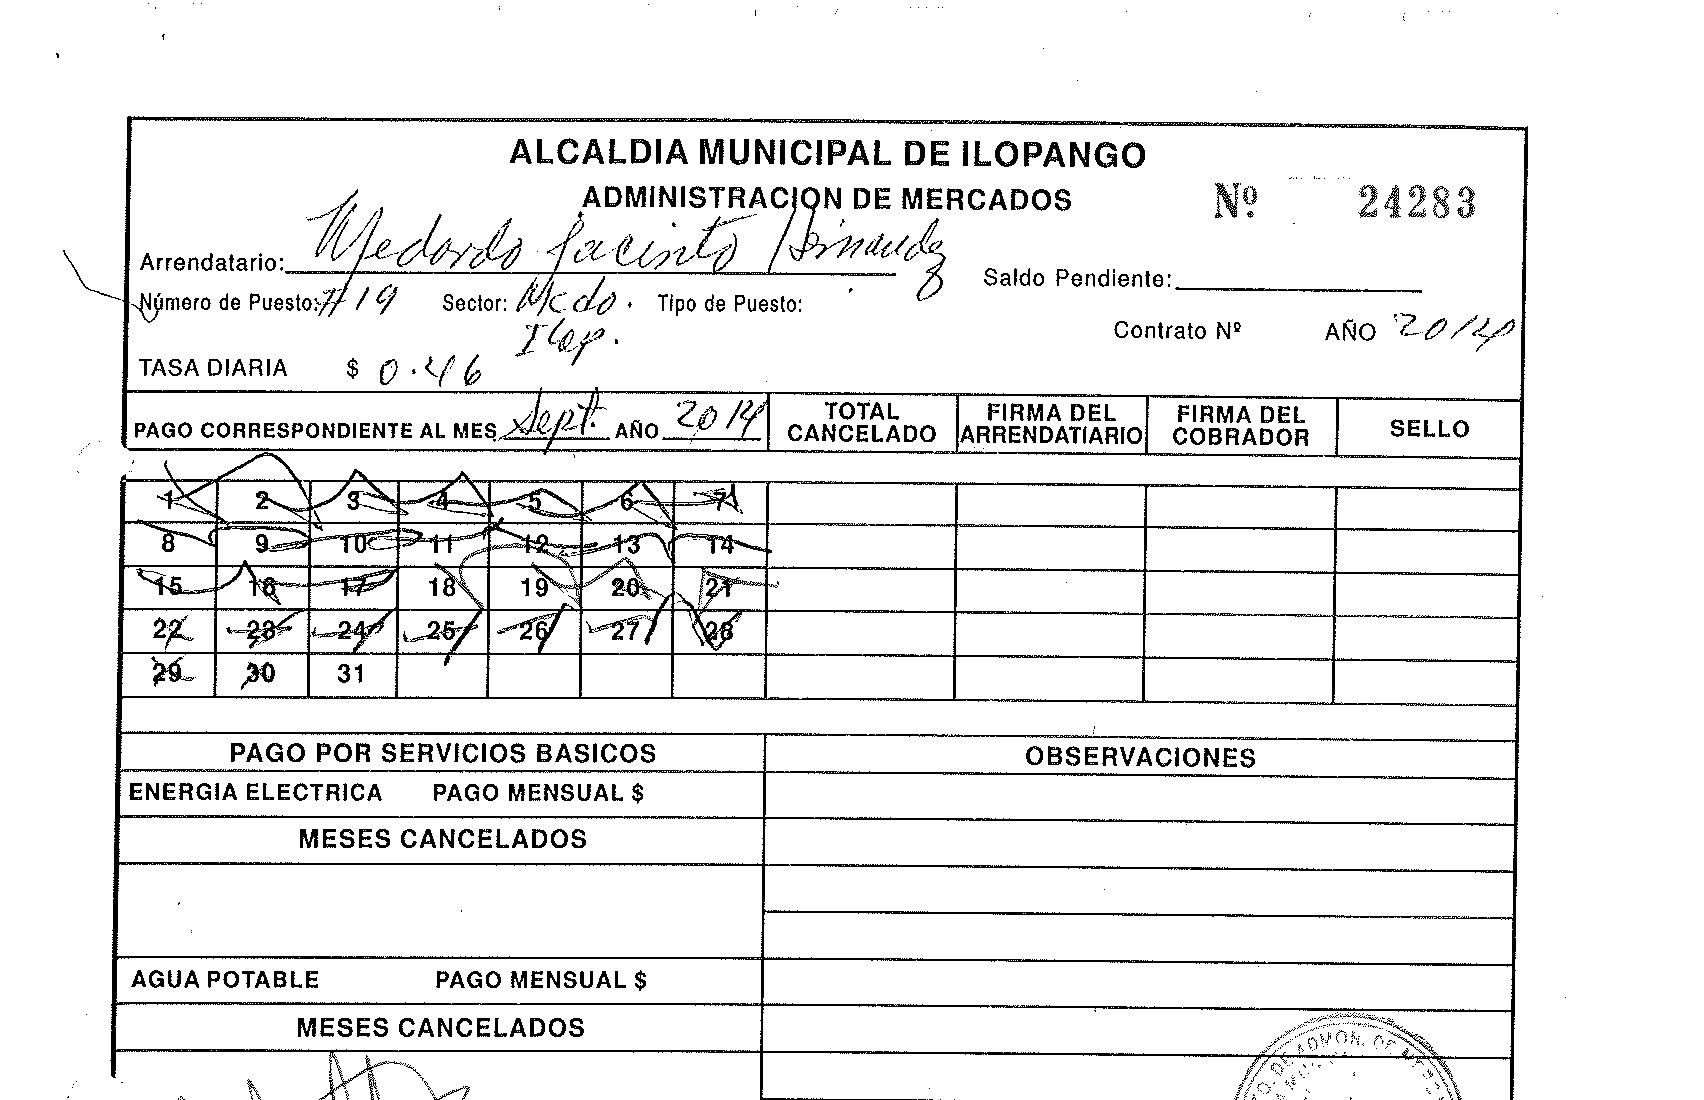 ALCALDIA MUNICIPAL DE ILOPANGO
ADMINISTRACION DE MERCADOS
Nº 24283
Arrendatario: Medardo Jacinto Hernandez
Saldo Pendiente:
Número de Puesto: #19 Sector: Mcdo. Tipo de Puesto:
Ilop.
Contrato Nº AÑO 2014
TASA DIARIA $ 0.46
PAGO CORRESPONDIENTE AL MES Sept. AÑO 2014
TOTAL CANCELADO
FIRMA DEL ARRENDATIARIO
FIRMA DEL COBRADOR
SELLO
1 2 3 4 5 6 7
8 9 10 11 12 13 14
15 16 17 18 19 20 21
22 23 24 25 26 27 28
29 30 31
PAGO POR SERVICIOS BASICOS
OBSERVACIONES
ENERGIA ELECTRICA PAGO MENSUAL $
MESES CANCELADOS
AGUA POTABLE PAGO MENSUAL $
MESES CANCELADOS
DE ADMON. DE